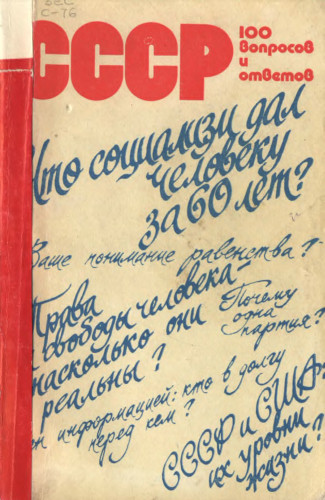 С-76
СССР
100
вопросов
и
ответов
Что социализм дал
человеку
за 60 лет?
Ваше понимание равенства?
Права
и свободы человека-
насколько они
реальны?
Почему
одна
партия?
ен информацией: кто в долгу
перед кем?
СССР и США:
их уровни
жизни?